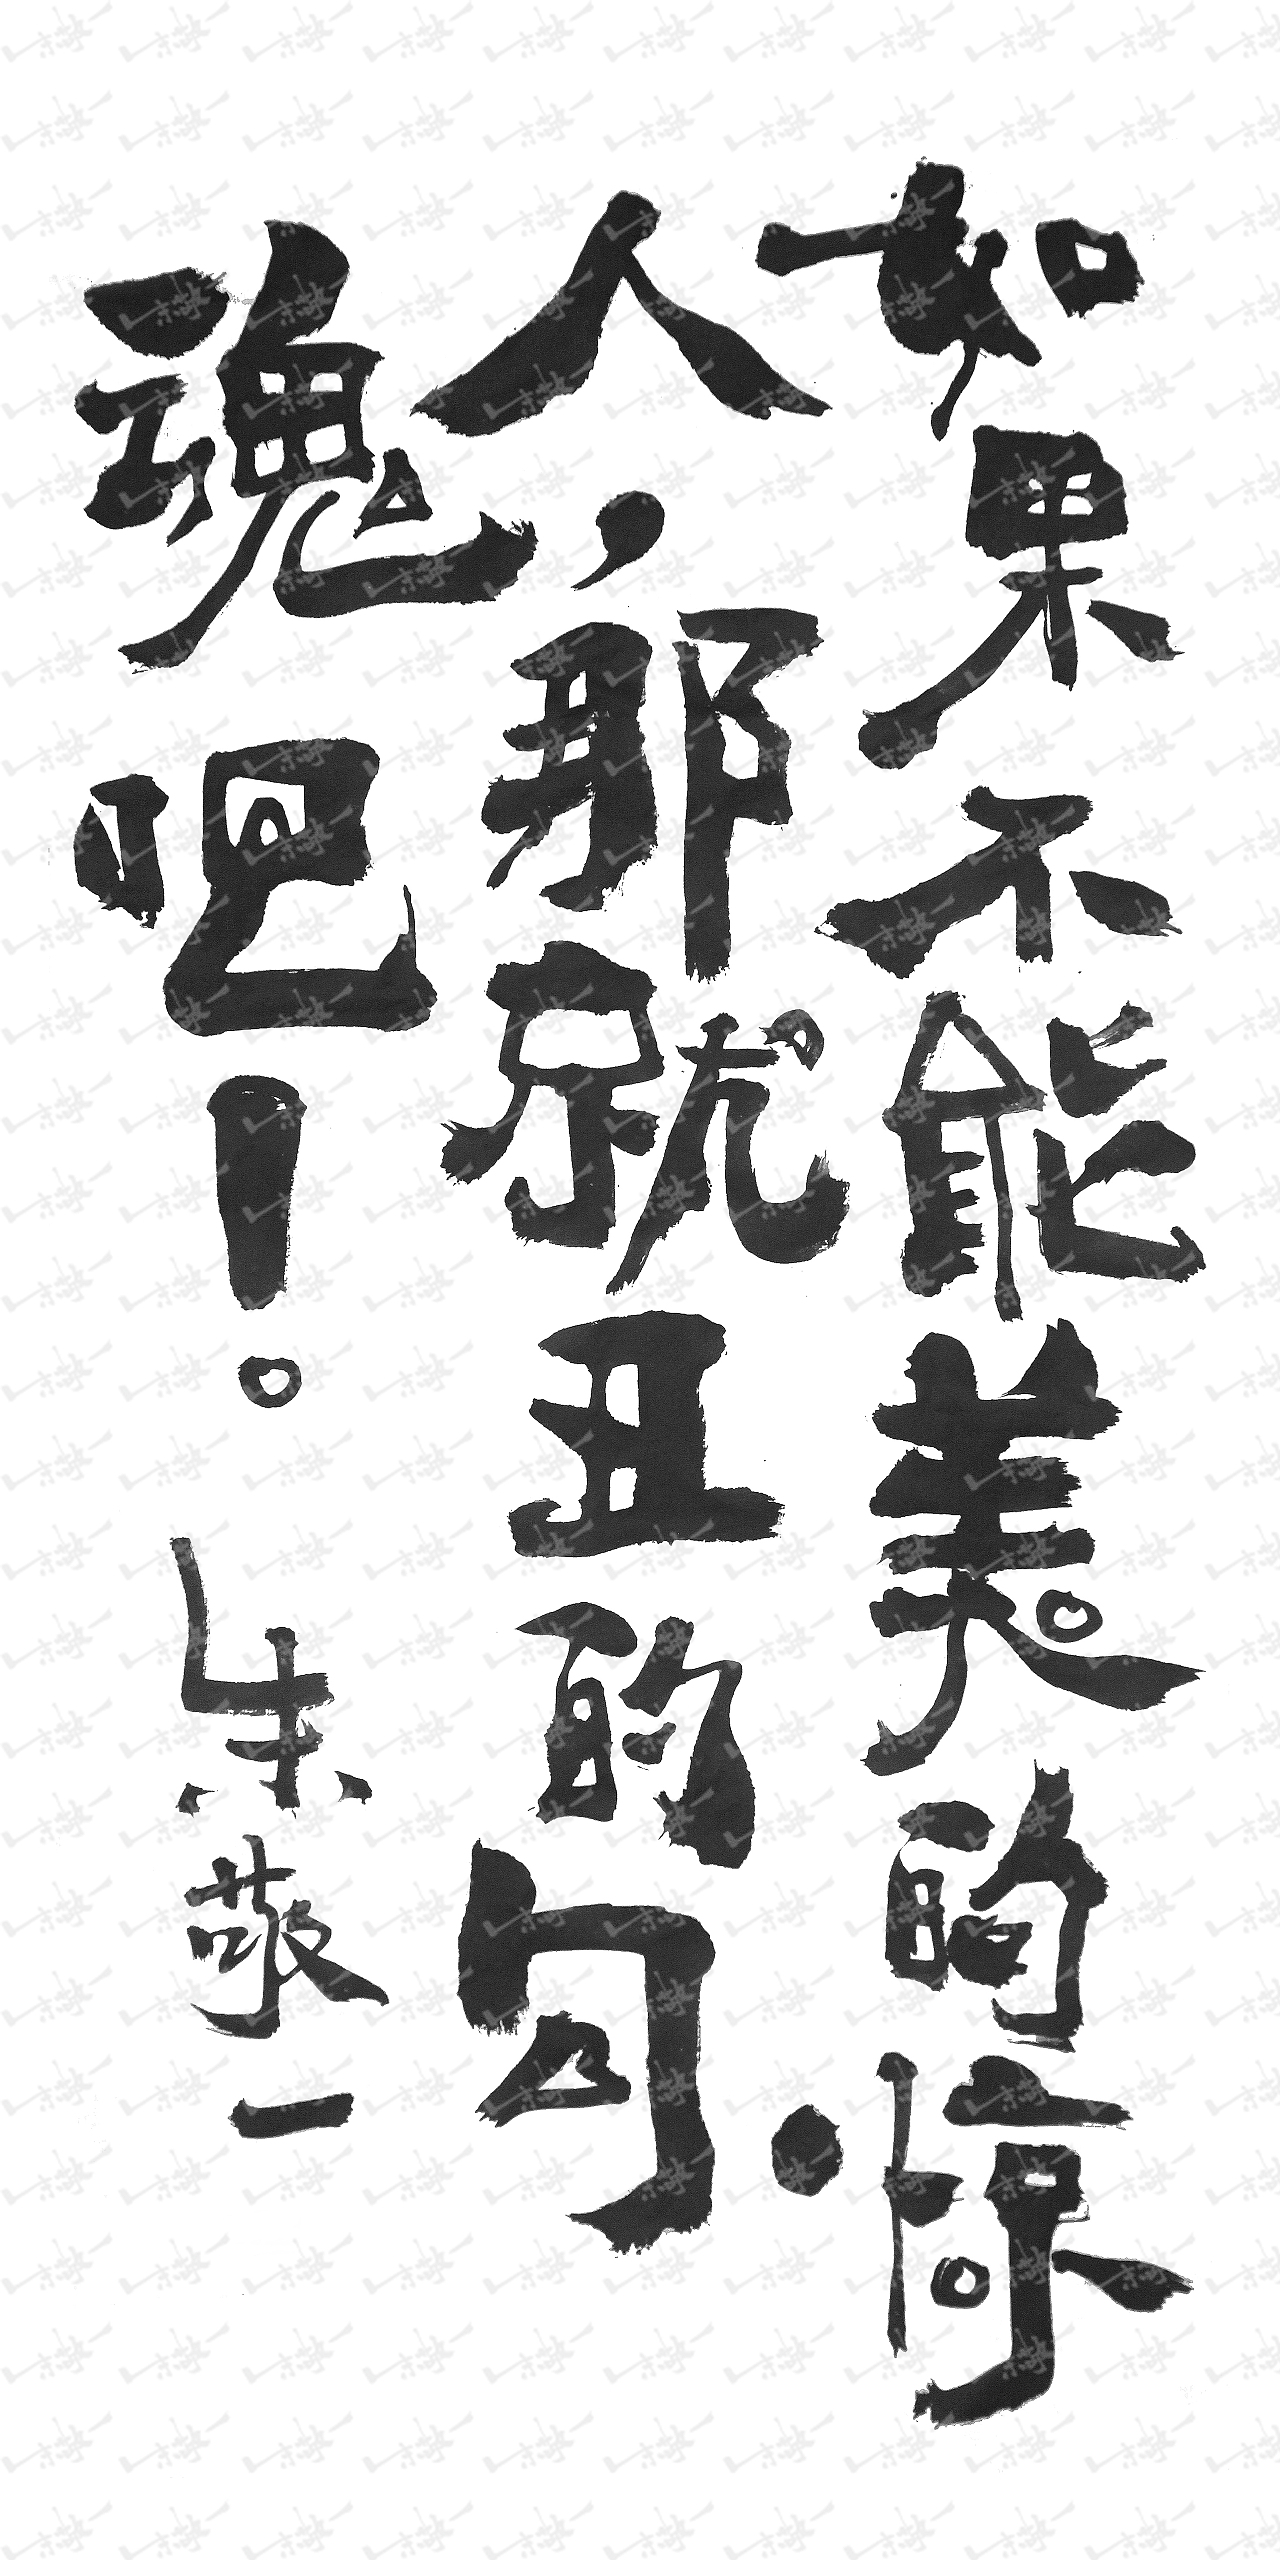 如果不能美的惊
人，那就丑的勾
魂吧！。朱敬一